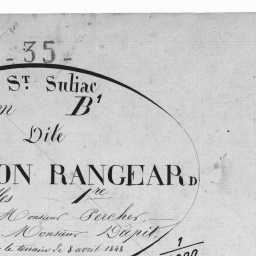 - 35 -
St Suliac
on B¹
Dite
ON RANGEARD
les 1re
Monsieur Percher.
Monsieur Dapit
le terrain le 8 avril 1848
1